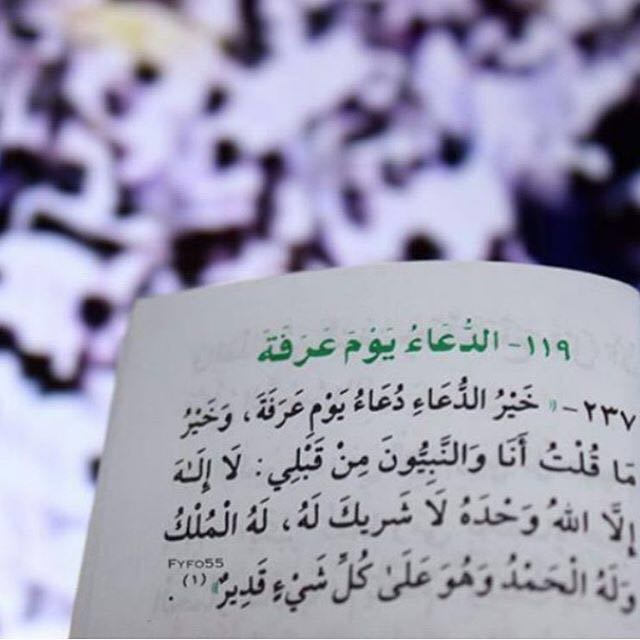 ١١٩- الدُّعَاءُ يَوْمَ عَرَفَةَ
٢٣٧- «خَيْرُ الدُّعَاءِ دُعَاءُ يَوْمِ عَرَفَةَ، وَخَيْرُ
مَا قُلْتُ أَنَا وَالنَّبِيُّونَ مِنْ قَبْلِي: لَا إِلَـٰهَ
إِلَّا اللهُ وَحْدَهُ لَا شَرِيكَ لَهُ، لَهُ الْمُلْكُ
وَلَهُ الْحَمْدُ وَهُوَ عَلَىٰ كُلِّ شَيْءٍ قَدِيرٌ» (١).
FYFO55